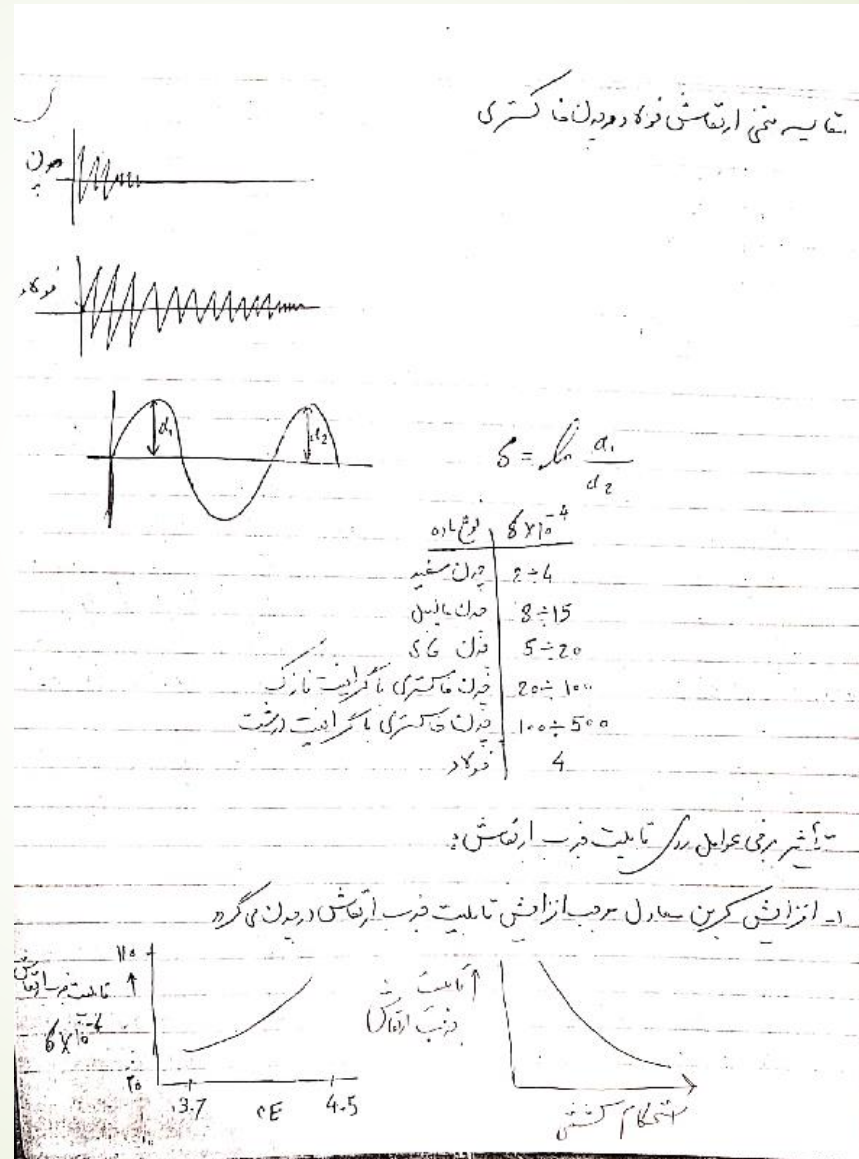 مقایسه منحنی ارتعاش فولاد و چدن خاکستری
چدن
فولاد
d₁
d₂
δ = ln d₁/d₂
نوع ماده | δ×10⁻⁴
چدن سفید | 2÷4
چدن مالیبل | 8÷15
چدن SG | 5÷20
چدن خاکستری با گرافیت نازک | 20÷100
چدن خاکستری با گرافیت درشت | 100÷500
فولاد | 4
تأثیر برخی عوامل روی قابلیت جذب ارتعاش:
۱- افزایش کربن معادل موجب افزایش قابلیت جذب ارتعاش در چدن می‌گردد
110
قابلیت جذب ارتعاش
δ×10⁻⁴
20
3.7 CE 4.5
قابلیت
جذب ارتعاش
استحکام کششی